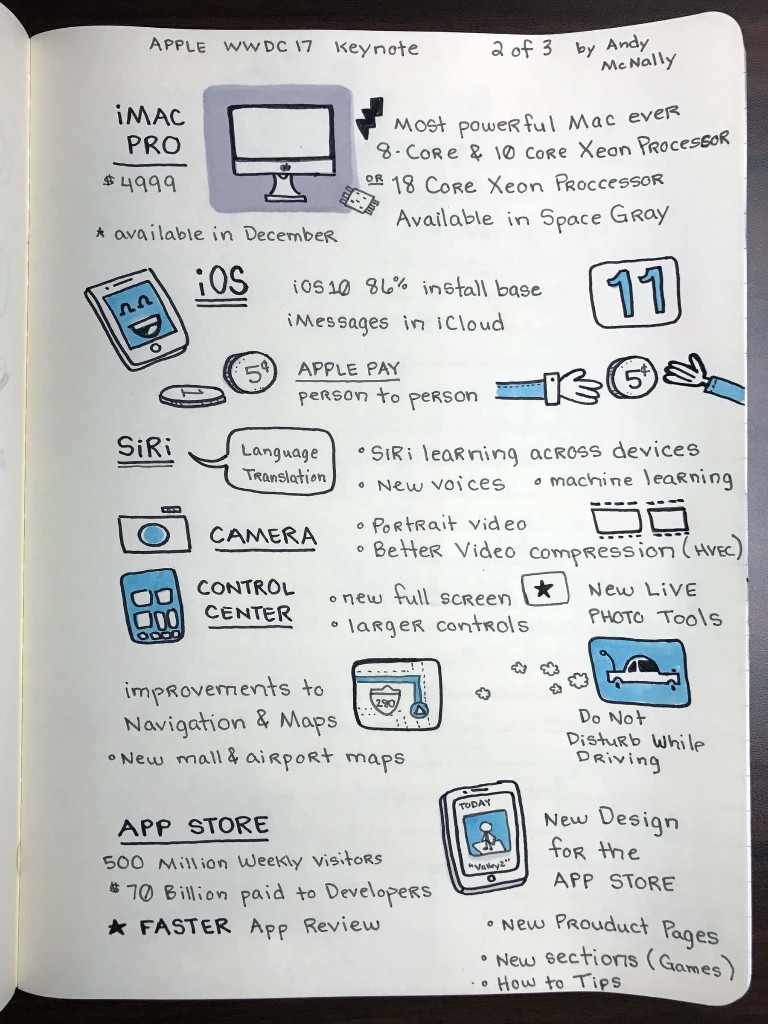 APPLE WWDC 17 Keynote 2 of 3 by Andy McNally
iMAC PRO
$4999
* available in December
Most powerful Mac ever
8-Core & 10 Core Xeon Processor
OR 18 Core Xeon Proccessor
Available in Space Gray
iOS
iOS 10 86% install base
iMessages in iCloud
11
5¢
1
APPLE PAY
person to person
5¢
SiRi
Language
Translation
• SiRi learning across devices
• New voices • machine learning
CAMERA
• Portrait video
• Better Video compression (HVEC)
CONTROL
CENTER
• new full screen
• larger controls
New Live
Photo Tools
improvements to
Navigation & Maps
• New mall & airport maps
280
Do Not
Disturb While
Driving
APP STORE
500 Million Weekly visitors
$70 Billion paid to Developers
★ FASTER App Review
TODAY
"Valley2"
New Design
for the
APP STORE
• New Prouduct Pages
• New sections (Games)
• How to Tips